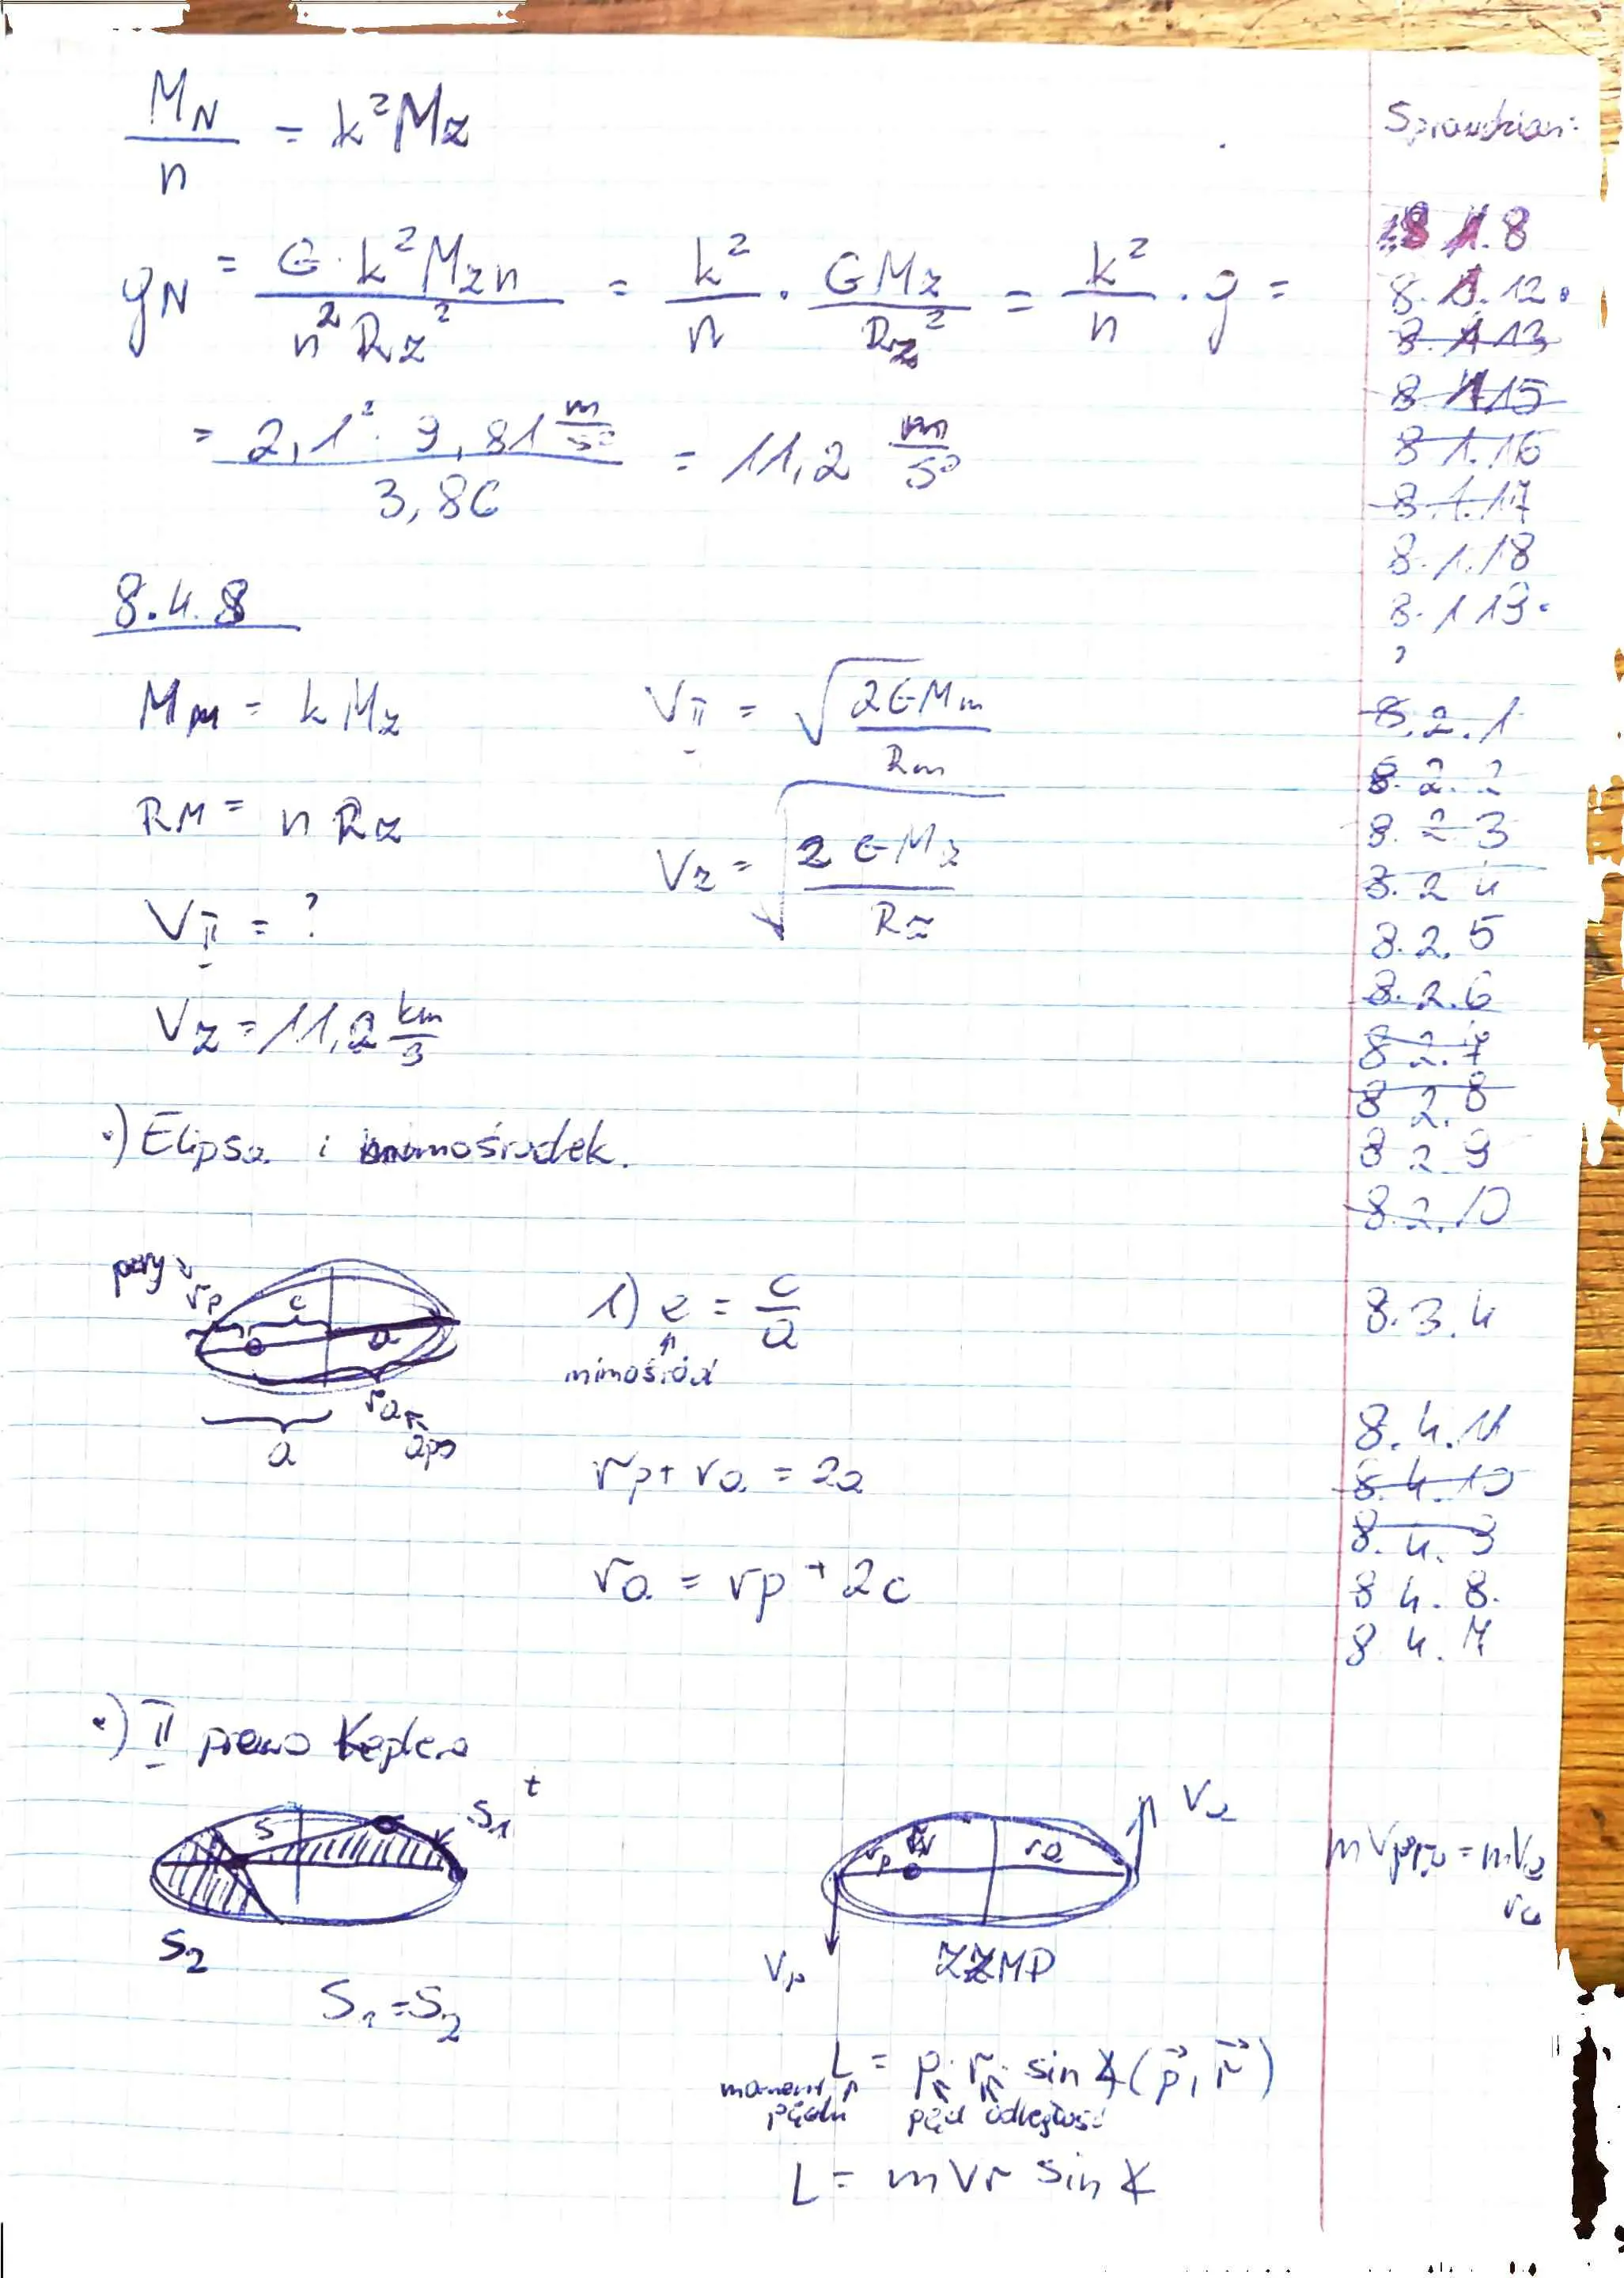 M_N / n = k² M_z
g_N = G · k² M_z n / n² R_z² = k² / n · G M_z / R_z² = k² / n · g =
= 2,1² · 9,81 m/s² / 3,86 = 11,2 m/s²
8.4.8
M_m = k M_z
V_II = √(2 G M_m / R_m)
R_M = n R_z
V_z = √(2 G M_z / R_z)
V_II = ?
V_z = 11,2 km/s
•) Elipsa i mimośrodek.
pery
r_p
c
a
r_a
apo
a
1) e = c / a
mimośród
r_p + r_a = 2a
r_a = r_p + 2c
•) II prawo Keplera
t
S
S_1
S_2
S_1 = S_2
r_p
r_a
V_a
V_p
ZZMP
L = p · r · sin ∢ (p⃗, r⃗)
moment pędu
pęd odległość
L = m V r sin ∢
Sprawdzian:
8.1.8
8.1.12.
8.1.13
8.1.15
8.1.16
8.1.17
8.1.18
8.1.19.
?
8.2.1
8.2.2
8.2.3
8.2.4
8.2.5
8.2.6
8.2.7
8.2.8
8.2.9
8.2.10
8.3.4
8.4.11
8.4.10
8.4.9
8.4.8.
8.4.7
m V_p r_p = m V_a
r_a